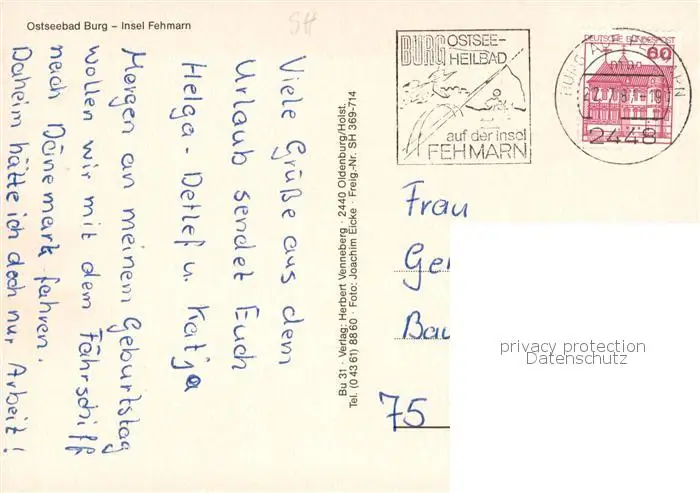 Ostseebad Burg – Insel Fehmarn
SH
Viele Grüße aus dem
Urlaub sendet Euch
Helga - Detlef u. Katja
Morgen an meinem Geburtstag
wollen wir mit dem Fährschiff
nach Dänemark fahren.
Daheim hätte ich doch nur Arbeit!
Bu 31 · Verlag: Herbert Venneberg · 2440 Oldenburg/Holst.
Tel. (0 43 61) 88 60 · Foto: Joachim Eicke · Freig.-Nr. SH 369-714
BURG OSTSEE-
HEILBAD
auf der Insel
FEHMARN
DEUTSCHE BUNDESPOST
60
2448
Frau
Ge
Bau
75
privacy protection
Datenschutz